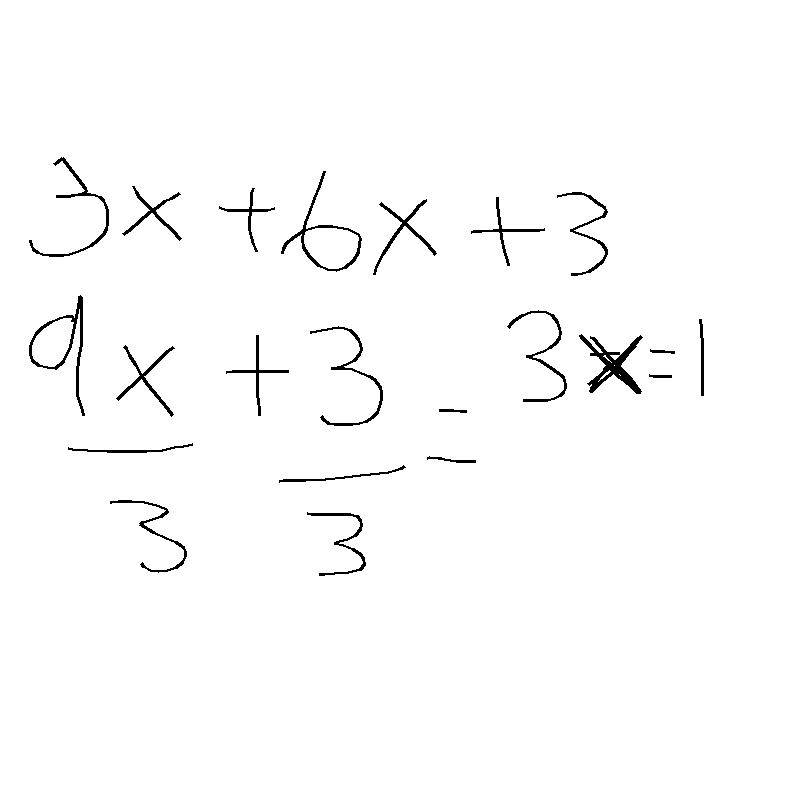 3x + 6x + 3
9x/3 + 3/3 = 3x = 1